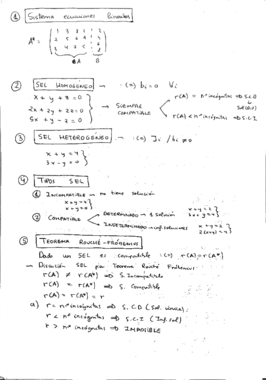 ① Sistema ecuaciones lineales
A* =
A B
② SEL HOMOGÉNEO → (=) bi = 0 ∀i
x + y + z = 0
2x + 2y + 2z = 0
5x + y - z = 0
→ SIEMPRE COMPATIBLE
r(A) = nº incógnitas ⇒ S.C.D
r(A) < nº incógnitas ⇒ S.C.I
③ SEL HETEROGÉNEO → (=) ∃i / bi ≠ 0
x + y = 7
3x - y = 0
④ TIPOS SEL
① INCOMPATIBLE → no tiene solución
② COMPATIBLE
DETERMINADO → 1 solución
INDETERMINADO → ∞ soluciones
⑤ TEOREMA ROUCHÉ-FRÖBENIUS
Dado un SEL es compatible (=) r(A) = r(A*)
→ Discusión SEL por Teorema Rouché Fröbenius:
r(A) ≠ r(A*) ⇒ S. Incompatible
r(A) = r(A*) ⇒ S. Compatible
r(A) = r(A*) = r
a) r = nº incógnitas ⇒ S.C.D (Sol. única)
r < nº incógnitas ⇒ S.C.I (Inf. sol)
r > nº incógnitas ⇒ IMPOSIBLE